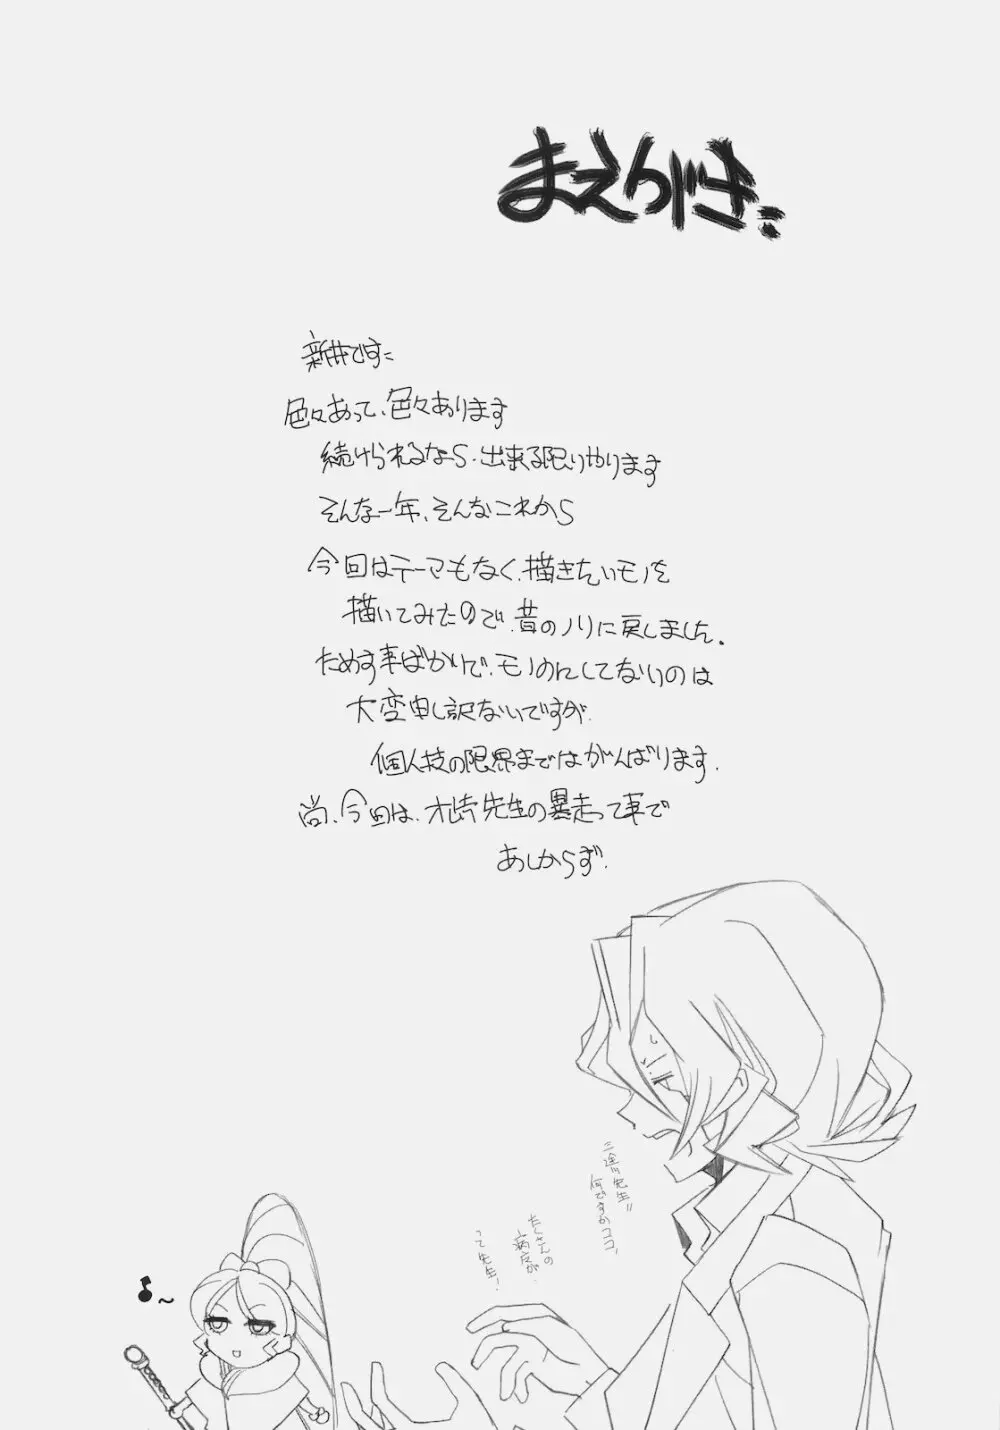 まえがき
新井です
色々あって、色々あります
続けられるなら、出来る限りやります
そんな一年、そんなこれから
今回はテーマもなく、描きたいモノを
描いてみたので、昔のノリに戻しました。
ためす事ばかりで、モノにしてないのは
大変申し訳ないですが、
個人技の限界まではがんばります。
尚、今回は、先生の暴走って事で
あしからず。
三途川先生!!
何ですかココ、
たくさんの
病反が、
って先生!